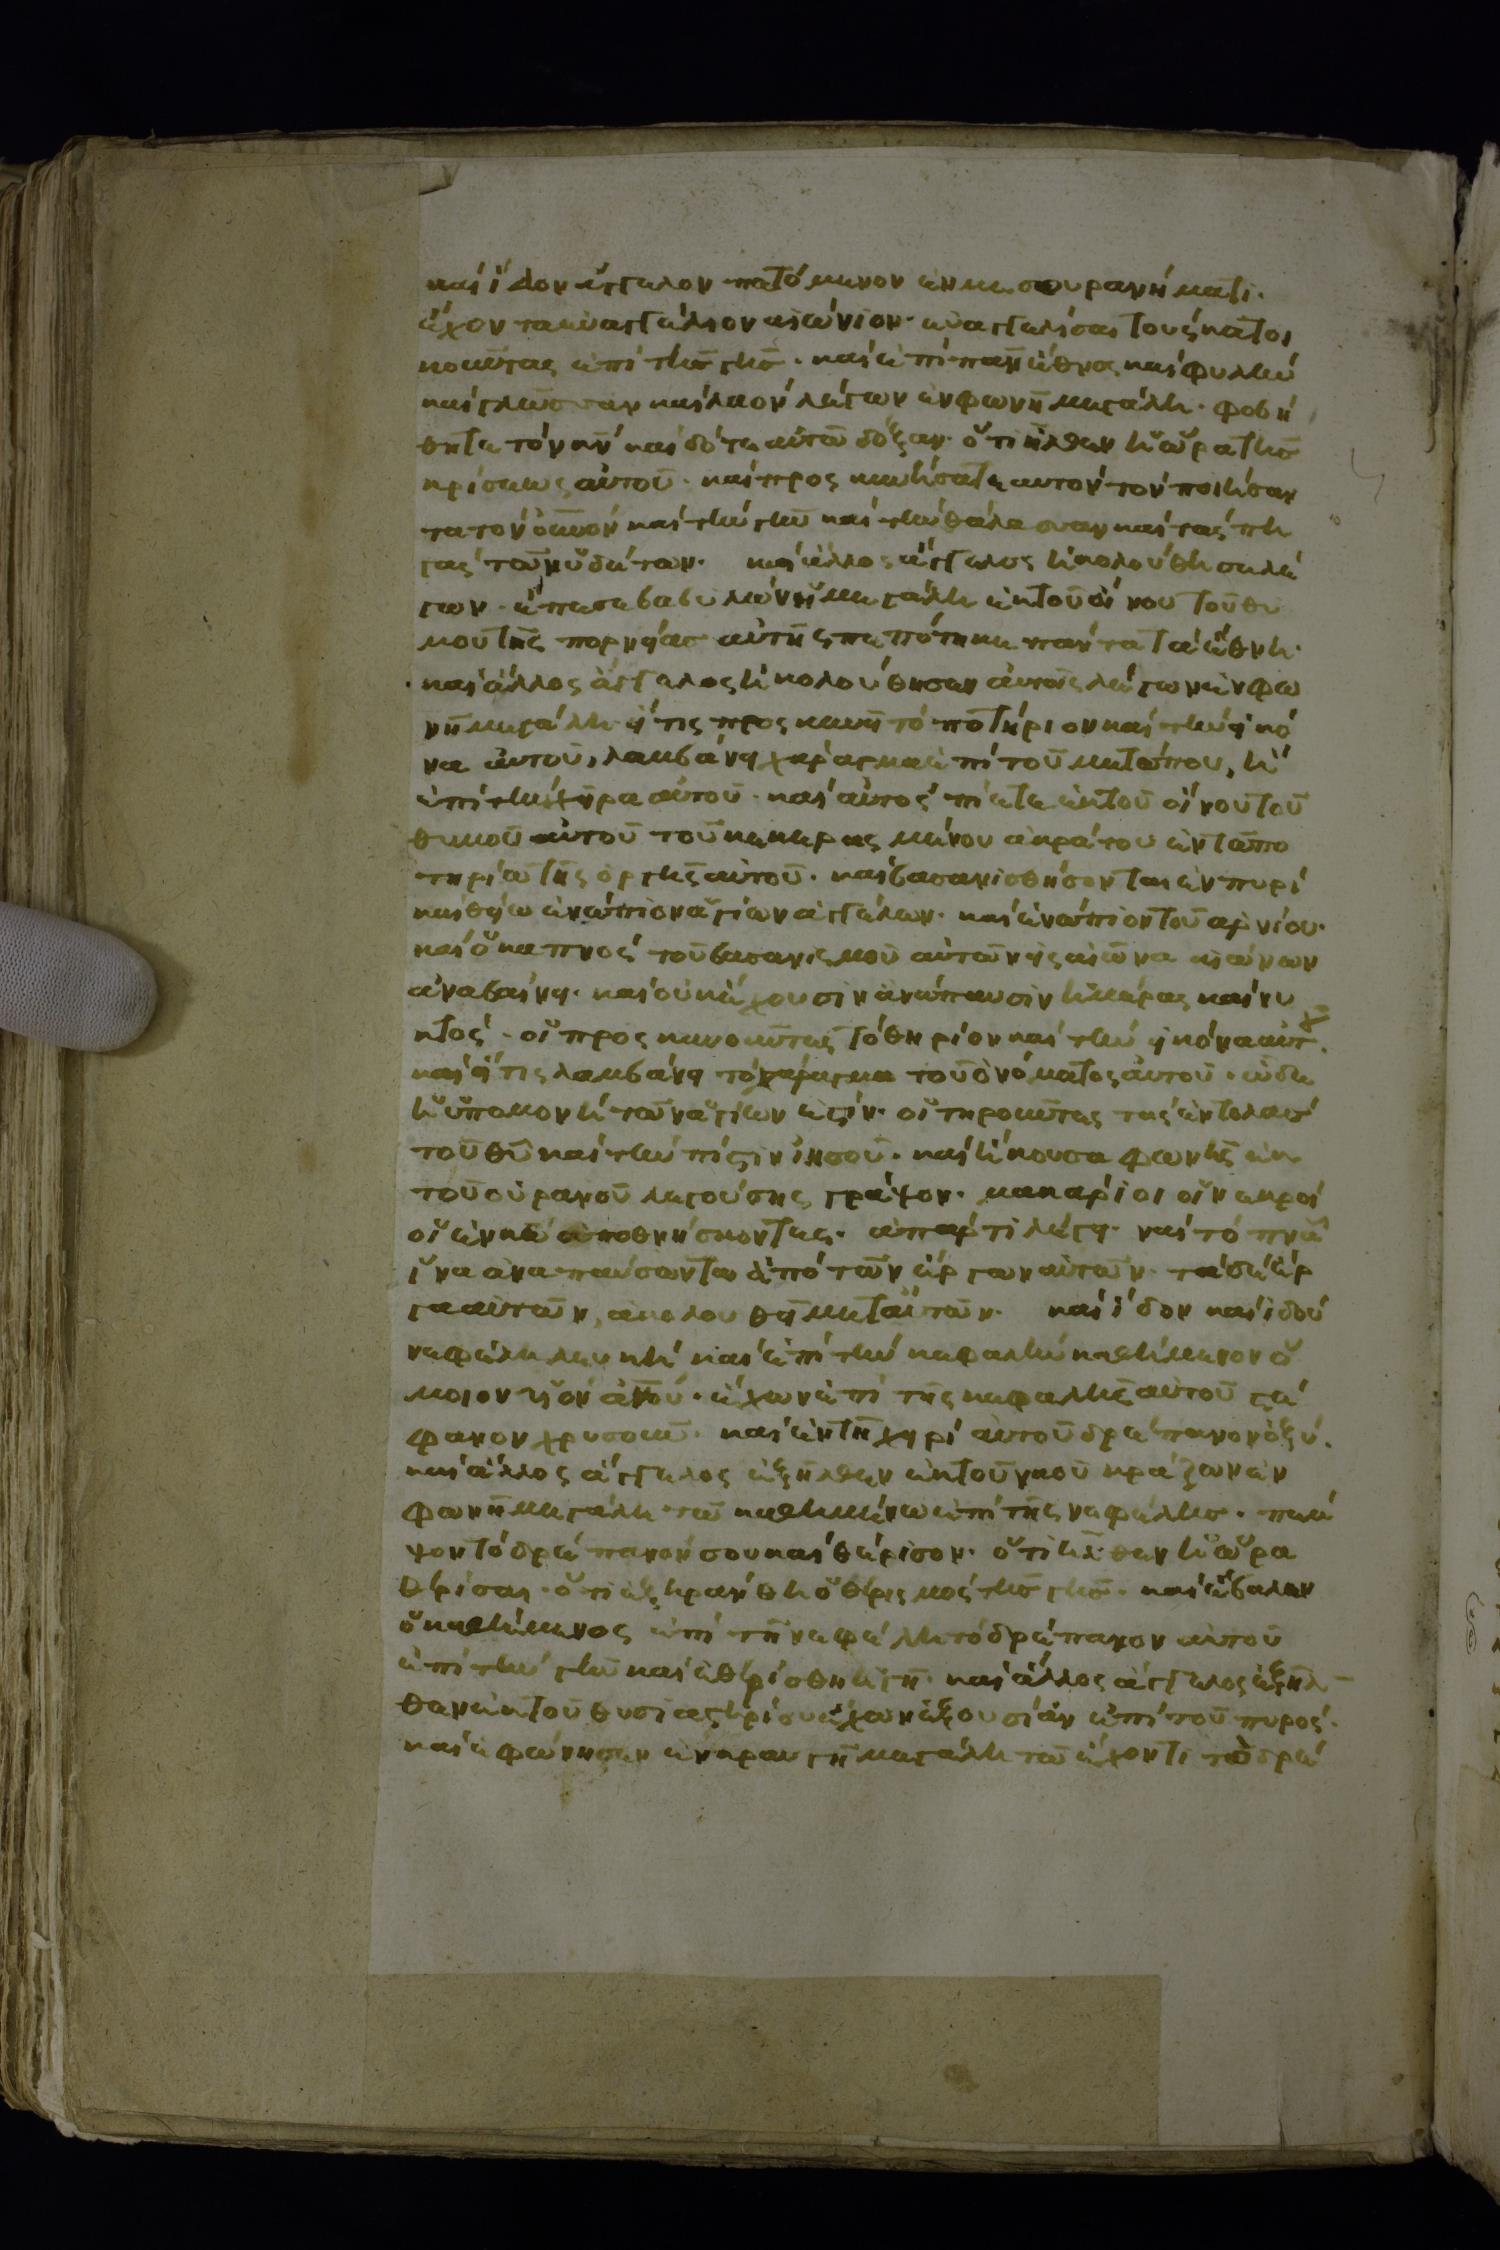 καὶ ἴδον ἄγγελον πετόμενον ἐν μεσουρανήματι.
ἔχοντα εὐαγγέλιον αἰώνιον· εὐαγγελίσαι τοὺς κατοι
κοῦντας ἐπὶ τῆς γῆς. καὶ ἐπὶ πᾶν ἔθνος καὶ φυλὴν
καὶ γλῶσσαν καὶ λαὸν λέγων ἐν φωνῆ μεγάλη. φοβή
θητε τὸν κ̅ν̅ καὶ δότε αὐτῶ δόξαν· ὅτι ἦλθεν ἡ ὥρα τῆς
κρίσεως αὐτοῦ. καὶ προσκυνήσατε αυτὸν τὸν ποιήσαν
τα τὸν ο̅υ̅νὸν καὶ τὴν γῆν καὶ τὴν θάλασσαν καὶ τὰς πη
γὰς τῶν ὑδάτων. καὶ ἄλλος ἄγγελος ἠκολούθησε λέ
γων. ἔπεσε βαβυλὼν ἡ μεγάλη ἐκ τοῦ οἴνου τοῦ θυ
μοῦ τῆς πορνείας αὐτῆς πεπότηκε πάντα τὰ ἔθνη.
καὶ ἄλλος ἄγγελος ἠκολούθησεν αὐτοῖς λέγων ἐν φω
νῆ μεγάλη εἴ τις προσκυνῆ τὸ ποτήριον καὶ τὴν εἰκό
να αὐτοῦ, λαμβάνει χάραγμα ἐπὶ τοῦ μετώπου, ἢ
ἐπὶ τὴν χεῖρα αὐτοῦ. καὶ αὐτὸς πίεται ἐκ τοῦ οἴνου τοῦ
θυμοῦ αὐτοῦ τοῦ κεκερασμένου ἀκράτου ἐν τῶ πο
τηρίω τῆς ὀργῆς αὐτοῦ. καὶ βασανισθήσονται ἐν πυρὶ
καὶ θείω ἐνώπιον ἁγίων ἀγγέλων. καὶ ἐνώπιον τοῦ αρνίου.
καὶ ὁ καπνὸς τοῦ βασανισμοῦ αὐτῶν εἰς αἰῶνα αἰώνων
ἀναβαίνει. καὶ οὐκ ἔχουσιν ἀνάπαυσιν ἡμέρας καὶ νυ
κτὸς. οἱ προσκυνοῦντες τὸ θηρίον καὶ τὴν εἰκόνα αὐτ.
καὶ εἴ τις λαμβάνει τὸ χάραγμα τοῦ ὀνόματος αὐτοῦ. ὧδε
ἡ ὑπομονὴ τῶν ἁγίων ἐστίν. οἱ τηροῦντες τὰς ἐντολὰς
τοῦ θ̅υ̅ καὶ τὴν πίστιν ἰησοῦ. καὶ ἤκουσα φωνῆς ἐκ
τοῦ οὐρανοῦ λεγούσης γράψον. μακάριοι οἱ νεκροὶ
οἱ ἐν κ̅ω̅ ἀποθνήσκοντες. ἀπάρτι λέγει. ναὶ τὸ π̅ν̅α̅
ἵνα ἀναπαύσωνται ἀπὸ τῶν ἔργων αὐτῶν. τὰ δὲ ἔρ
γα αὐτῶν, ἀκολουθεῖ μετ' αὐτῶν. καὶ ἴδον καὶ ἰδοὺ
νεφέλη λευκὴ καὶ ἐπὶ τὴν νεφελὴν καθήμενον ὅ
μοιον υἱὸν ἀ̅ν̅ο̅υ̅. ἔχων ἐπὶ τῆς κεφαλῆς αὐτοῦ στέ
φανον χρυσοῦν. καὶ ἐν τῆ χειρὶ αὐτοῦ δρέπανον ὀξύ.
καὶ ἄλλος ἄγγελος ἐξῆλθεν ἐκ τοῦ ναοῦ κράζων ἐν
φωνῆ μεγάλη τῶ καθημένω ἐπὶ τῆς νεφέλης. πέμ
ψον τὸ δρέπανόν σου καὶ θέρισον. ὅτι ἦλθεν ἡ ὥρα
θερίσαι. ὅτι ἐξηράνθη ὁ θερισμὸς τῆς γῆς. καὶ ἔβαλεν
ὁ καθήμενος ἐπὶ τῆ νεφέλη τὸ δρέπανον αὐτοῦ
ἐπὶ τὴν γῆν καὶ ἐθερίσθη ἡ γῆ. καὶ ἄλλος ἄγγελος ἐξῆλ
θεν ἐκ τοῦ θυσιαστηρίου ἔχων ἐξουσίαν ἐπὶ τοῦ πυρός.
καὶ ἐφώνησεν ἐν κραυγῆ μεγάλη τῶ ἔχοντι τὸ δρέ